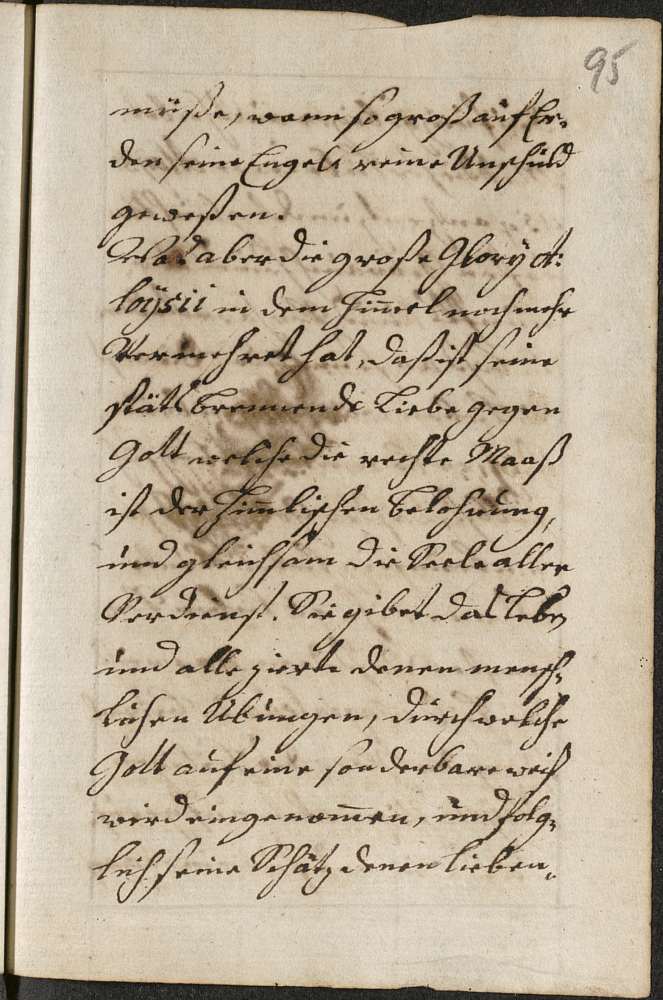 95
müsse, wann so groß auf Er-
den seine Engels reine Unschuld
gewesen.
Was aber die große Glory A:
loÿsii in dem Him̄el noch mehr
Vermehret hat, daß ist seine
stäts brennende Liebe gegen
Gott welche die rechte Maaß
ist der Him̄lischen belohnung,
und gleichsam die Seele aller
Verdienst. Sie gibet das Leben
und alle zierte denen mensch-
lichen Übungen, durch welche
Gott auf eine sonderbare weiß
wird eingenom̄en, und folg-
lich seine Schätz denen lieben-